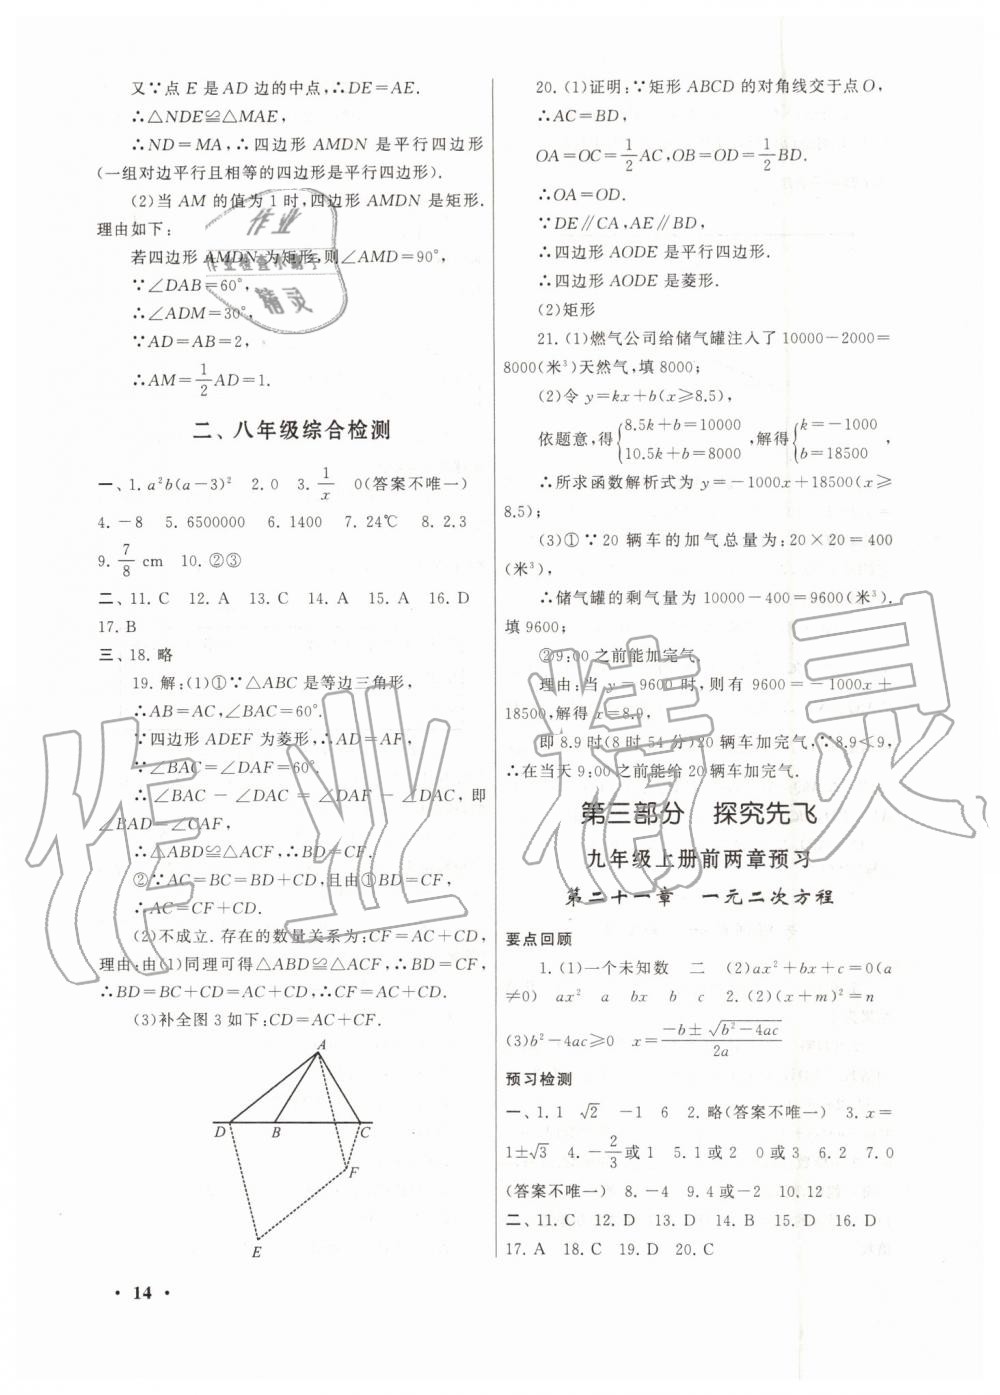 又∵点 E 是 AD 边的中点,∴DE=AE.
∴△NDE≌△MAE,
∴ND=MA,∴四边形 AMDN 是平行四边形
(一组对边平行且相等的四边形是平行四边形).
(2)当 AM 的值为 1 时,四边形 AMDN 是矩形.
理由如下:
若四边形 AMDN 为矩形,则∠AMD=90°,
∵∠DAB=60°,
∴∠ADM=30°,
∵AD=AB=2,
∴AM=1/2 AD=1.
二、八年级综合检测
一、1. a²b(a-3)² 2. 0 3. 1/x 0(答案不唯一)
4. -8 5. 6500000 6. 1400 7. 24℃ 8. 2.3
9. 7/8 cm 10. ②③
二、11. C 12. A 13. C 14. A 15. A 16. D
17. B
三、18. 略
19. 解:(1)①∵△ABC 是等边三角形,
∴AB=AC,∠BAC=60°.
∵四边形 ADEF 为菱形,∴AD=AF,
∵∠BAC=∠DAF=60°.
∴∠BAC-∠DAC=∠DAF-∠DAC,即
∠BAD=∠CAF,
∴△ABD≌△ACF,∴BD=CF.
②∵AC=BC=BD+CD,且由①BD=CF,
∴AC=CF+CD.
(2)不成立. 存在的数量关系为:CF=AC+CD,
理由:由(1)同理可得△ABD≌△ACF,∴BD=CF,
∴BD=BC+CD=AC+CD,∴CF=AC+CD.
(3)补全图 3 如下:CD=AC+CF.
A
D B C
F
E
• 14 •
20. (1)证明:∵矩形 ABCD 的对角线交于点 O,
∴AC=BD,
OA=OC=1/2 AC,OB=OD=1/2 BD.
∴OA=OD.
∵DE∥CA,AE∥BD,
∴四边形 AODE 是平行四边形.
∴四边形 AODE 是菱形.
(2)矩形
21. (1)燃气公司给储气罐注入了 10000-2000=
8000(米³)天然气,填 8000;
(2)令 y=kx+b(x≥8.5),
依题意,得{8.5k+b=10000 10.5k+b=8000,解得{k=-1000 b=18500,
∴所求函数解析式为 y=-1000x+18500(x≥
8.5);
(3)①∵20 辆车的加气总量为:20×20=400
(米³),
∴储气罐的剩气量为 10000-400=9600(米³),
填 9600;
②9:00 之前能加完气.
理由:当 y=9600 时,则有 9600=-1000x+
18500,解得 x=8.9,
即 8.9 时(8 时 54 分)20 辆车加完气,∵8.9<9,
∴在当天 9:00 之前能给 20 辆车加完气.
第三部分 探究先飞
九年级上册前两章预习
第二十一章 一元二次方程
要点回顾
1. (1)一个未知数 二 (2)ax²+bx+c=0(a
≠0) ax² a bx b c 2. (2)(x+m)²=n
(3)b²-4ac≥0 x=(-b±√(b²-4ac))/2a
预习检测
一、1. 1 √2 -1 6 2. 略(答案不唯一) 3. x=
1±√3 4. -2/3或 1 5. 1 或 2 0 或 3 6. 2 7. 0
(答案不唯一) 8. -4 9. 4 或-2 10. 12
二、11. C 12. D 13. D 14. B 15. D 16. D
17. A 18. C 19. D 20. C
作业
作业检查小助手
精灵
作业精灵